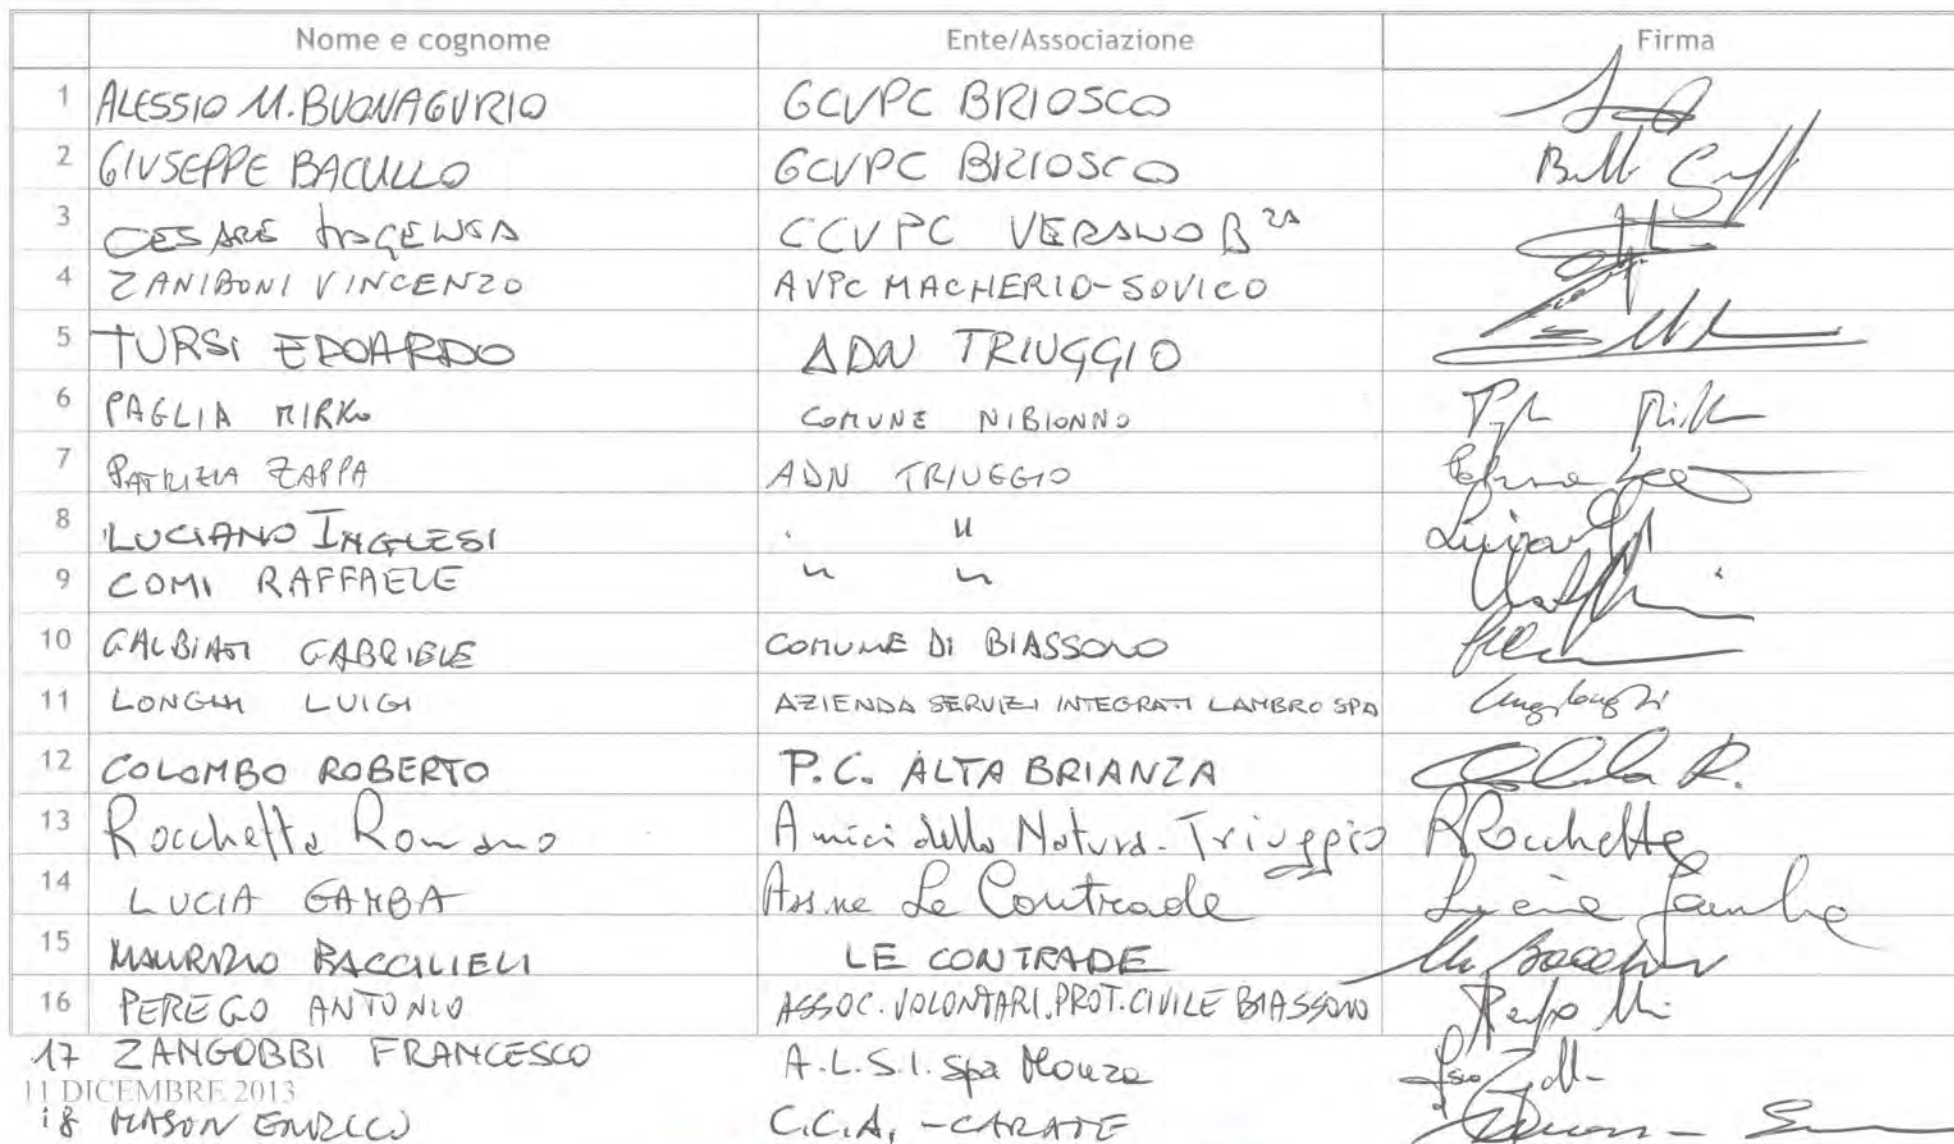 Nome e cognome Ente/Associazione Firma
1 ALESSIO M. BUONAGURIO GCVPC BRIOSCO
2 GIUSEPPE BACULLO GCVPC BRIOSCO
3 CESARE CCVPC VERANO B ZA
4 ZANIBONI VINCENZO AVPC MACHERIO-SOVICO
5 TURSI EDOARDO ADN TRIUGGIO
6 PAGLIA MIRKO COMUNE NIBIONNO
7 PATRIZIA ZAPPA ADN TRIUGGIO
8 LUCIANO INGLESI " "
9 COMI RAFFAELE " "
10 GALBIATI GABRIELE COMUNE DI BIASSONO
11 LONGHI LUIGI AZIENDA SERVIZI INTEGRATI LAMBRO SPA Luigi Longhi
12 COLOMBO ROBERTO P.C. ALTA BRIANZA Colombo R.
13 Rocchetta Romano Amici della Natura - Triuggio R Rocchetta
14 LUCIA GAMBA Ass.ne Le Contrade Lucia Gamba
15 MAURIZIO BACCILIELI LE CONTRADE
16 PEREGO ANTONIO ASSOC. VOLONTARI. PROT. CIVILE BIASSONO
17 ZANGOBBI FRANCESCO A.L.S.I. Spa Monza
11 DICEMBRE 2013
18 MASON ENRICO C.C.A. - CARATE